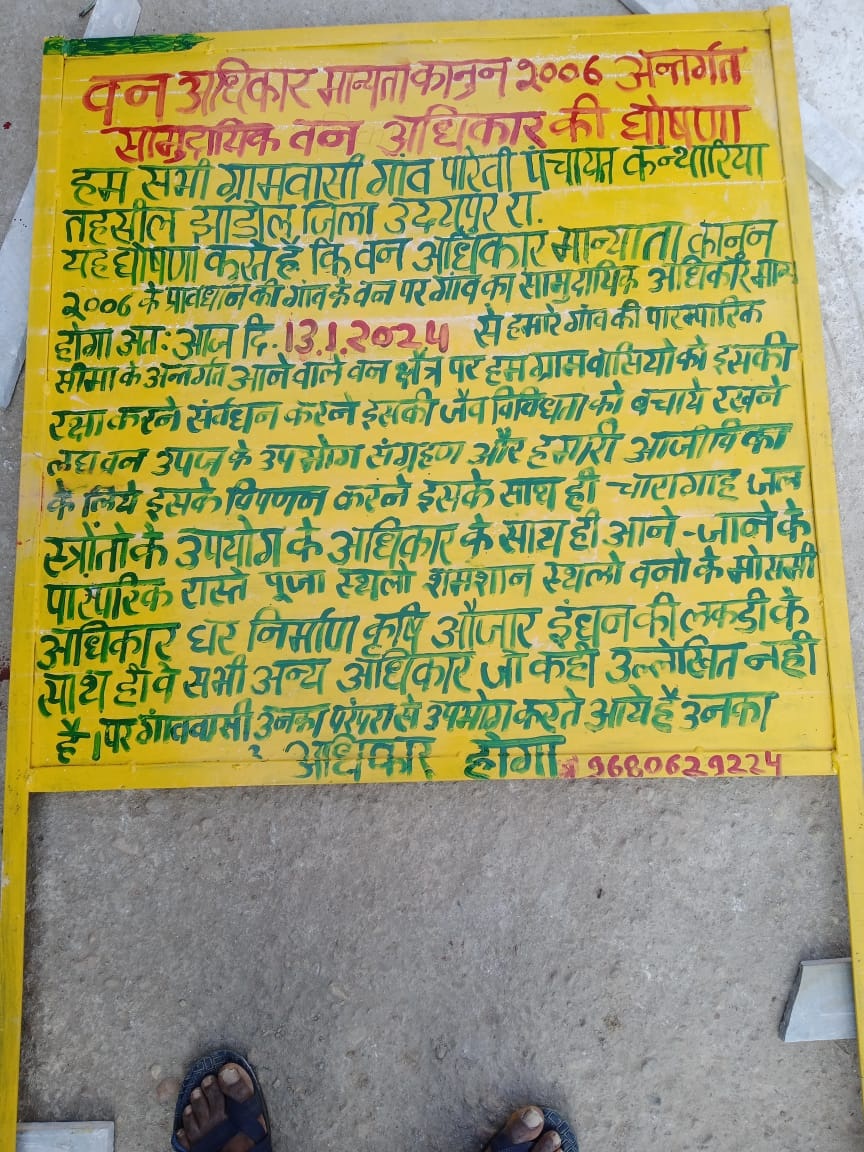 वन अधिकार मान्यता कानुन २००६ अन्तर्गत
सामुदायिक वन अधिकार की घोषणा
हम सभी ग्रामवासी गांव पारेवी पंचायत कन्थारिया
तहसील झाडोल जिला उदयपुर रा.
यह घोषणा करते है कि वन अधिकार मान्याता कानुन
२००६ के प्रावधान की गांव के वन पर गांव का सामुदायिक अधिकार मान्य
होगा अतः आज दि. 13.1.2024 से हमारे गांव की पारम्पारिक
सीमा के अन्तर्गत आने वाले वन क्षैत्र पर हम ग्राम वासियो को इसकी
रक्षा करने संर्वधन करने इसकी जैव विविधता को बचाये रखने
लघु वन उपज के उपभोग संग्रहण और हमारी आजीविका
के लिये इसके विपणन करने इसके साथ ही चारागाह जल
स्त्रोंतो के उपयोग के अधिकार के साथ ही आने-जाने के
पारंपरिक रास्ते पूजा स्थलो शमशान स्थलो वनो के मोसमी
अधिकार घर निर्माण कृषि औजार इंधन की लकडी के
साथ ही वे सभी अन्य अधिकार जो कही उल्लेखित नही
है। पर गांववासी उनका परंपरा से उपभोग करते आये है उनका
अधिकार होगा 9680629224